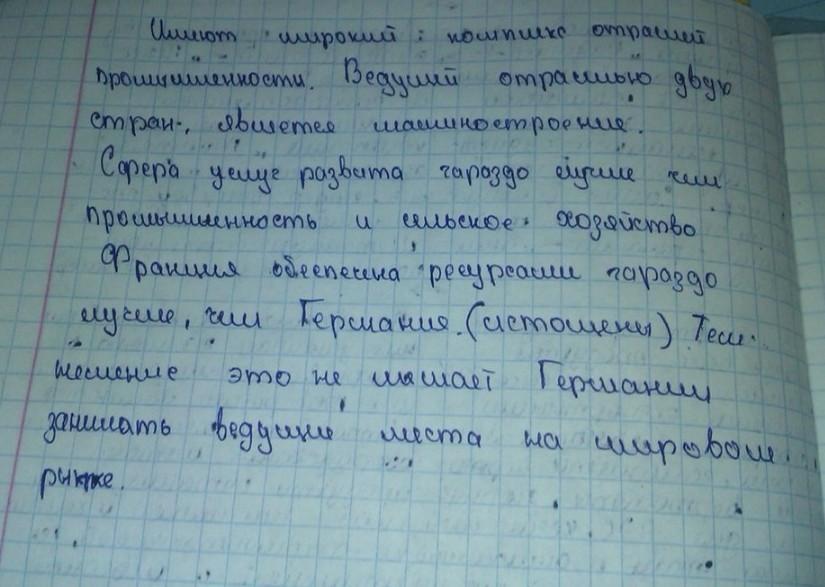 Имеют широкий комплекс отраслей
промышленности. Ведущий отраслью двух
стран, является машиностроение.
Сфера услуг развита гараздо лучше чем
промышленность и сельское хозяйство
Франция обеспечена ресурсами гараздо
лучше, чем Германия. (истощены) Тем
неменение это не мешает Германии
занимать ведущие места на мировом
рынке.